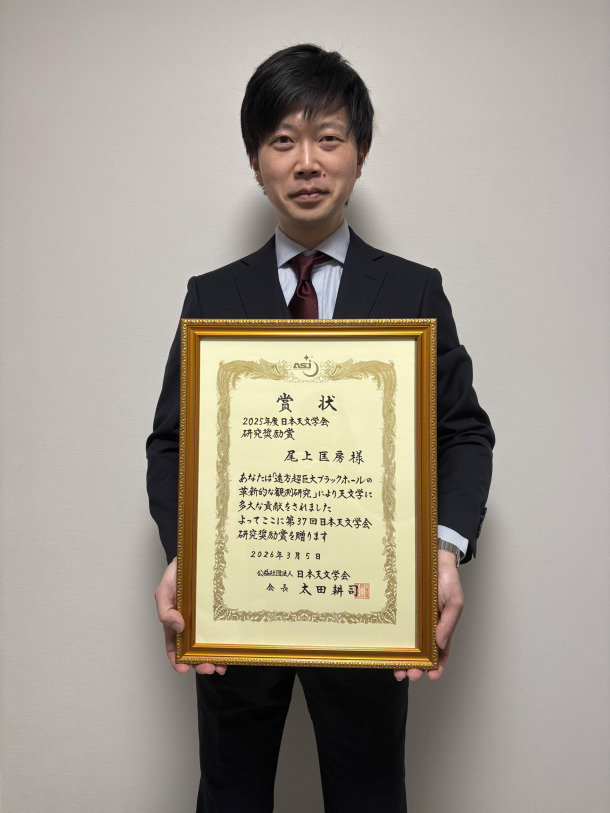 ASJ
賞状
2025年度日本天文学会
研究奨励賞
尾上匡房様
あなたは「遠方超巨大ブラックホールの
革新的な観測研究」により天文学に
多大な貢献をされました
よってここに第37回日本天文学会
研究奨励賞を贈ります
2026年3月5日
公益社団法人 日本天文学会
会長 太田耕司